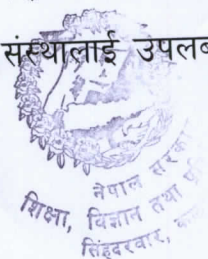 संस्थालाई उपलब
नेपाल सरका
शिक्षा, विज्ञान तथा
सिंहदरवार,